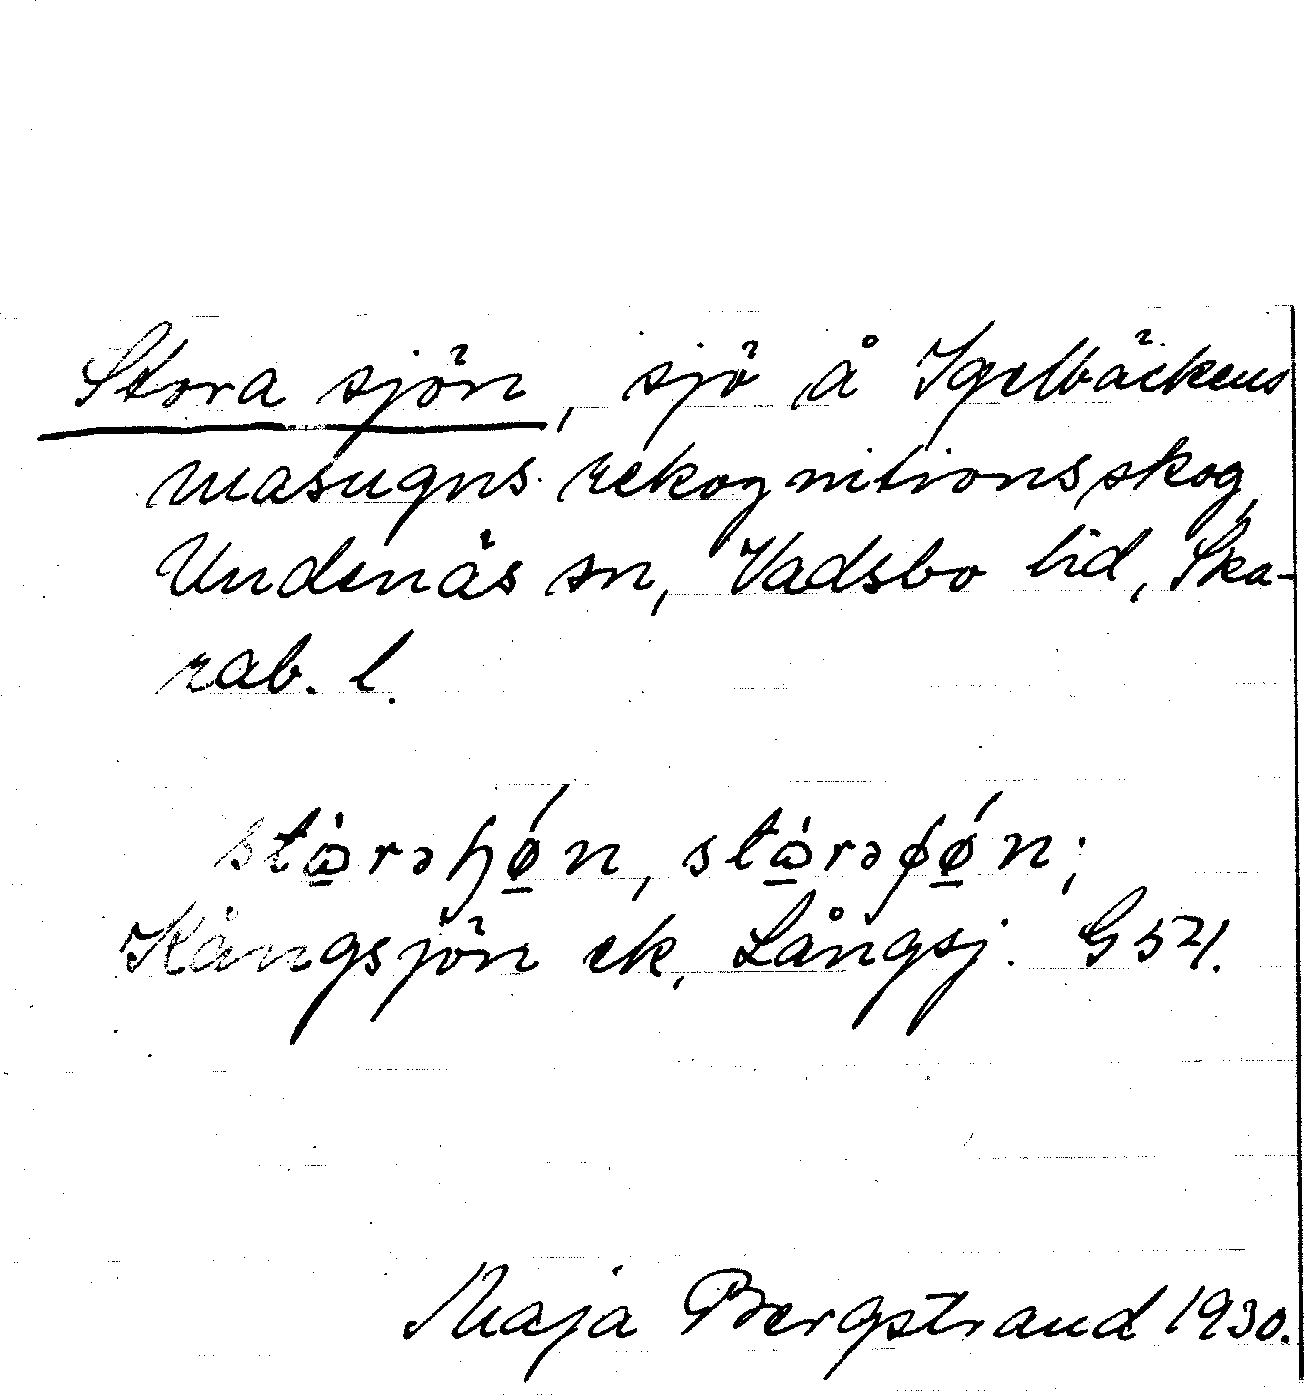 Stora sjön, sjö å Igelbäckens
masugns rekognitionsskog,
Undenäs sn, Vadsbo hd, Ska-
rab. l.
Kångsjön ek, Långsj. G 54.
Maja Bergstrand 1930.